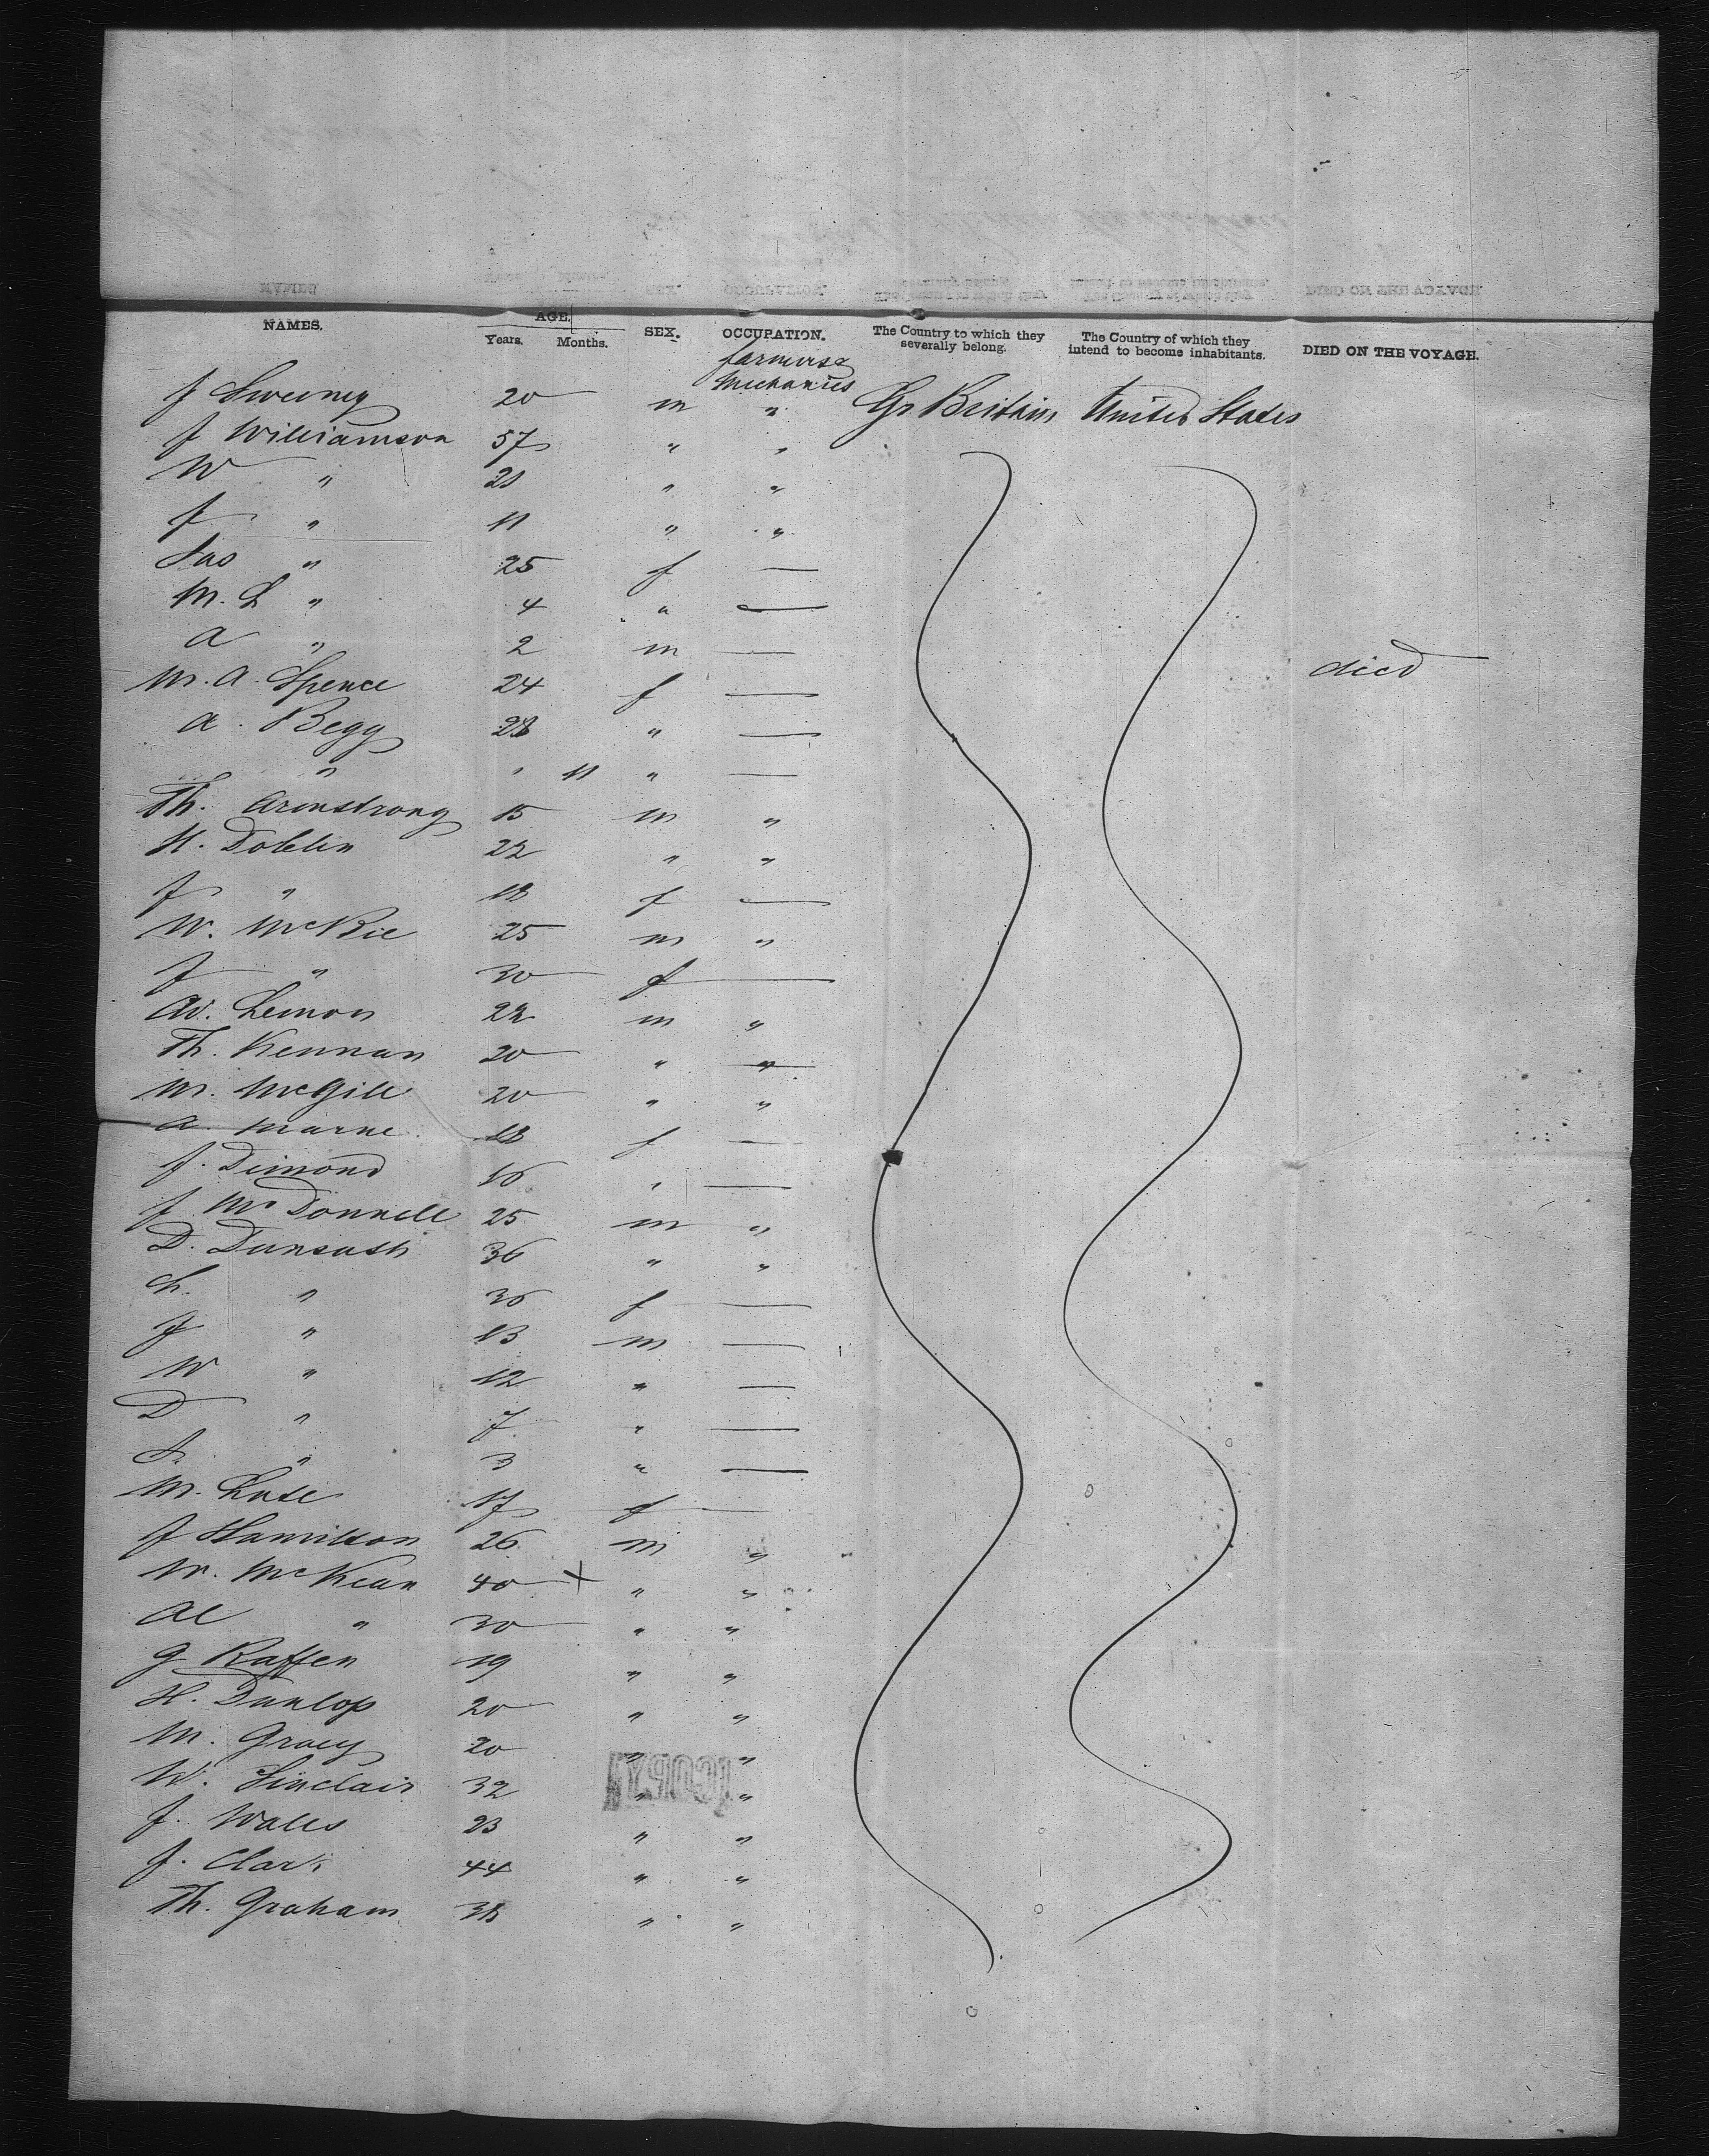 NAMES. AGE. Years. Months. SEX. OCCUPATION. The Country to which they severally belong. The Country of which they intend to become inhabitants. DIED ON THE VOYAGE.
farmers &
Mechanics
J Sweeney 20 m " Gr. Britain United States
J Williamson 57 " "
W " 21 " "
J " 11 " "
Jas " 25 f —
M. L " 4 " —
A " 2 m — died
M. A. Spence 24 f —
A. Begg 28 " —
" " 11 " —
Th. Armstrong 15 m "
H. Doblin 22 " "
J " 18 f —
W. McKie 25 m "
J " 30 f —
Av. Lemon 22 m "
Th. Kennan 20 " "
M. McGill 20 " "
A. Marne 18 f —
J. Dimond 16 " —
J McDonnell 25 m "
D. Dunsuth 36 " "
Ch. " 36 f —
J " 13 m —
W " 12 " —
D " 7 " —
S. " 3 " —
M. Lute 17 f —
J Hamilton 26 m "
W. McKean 40 + " "
Al " 30 " "
G Raffen 19 " "
H. Dunlop 20 " "
M. Gracy 20 " "
W. Sinclair 32 " "
J. Wales 23 " "
J. Clark 44 " "
Th. Graham 38 " "